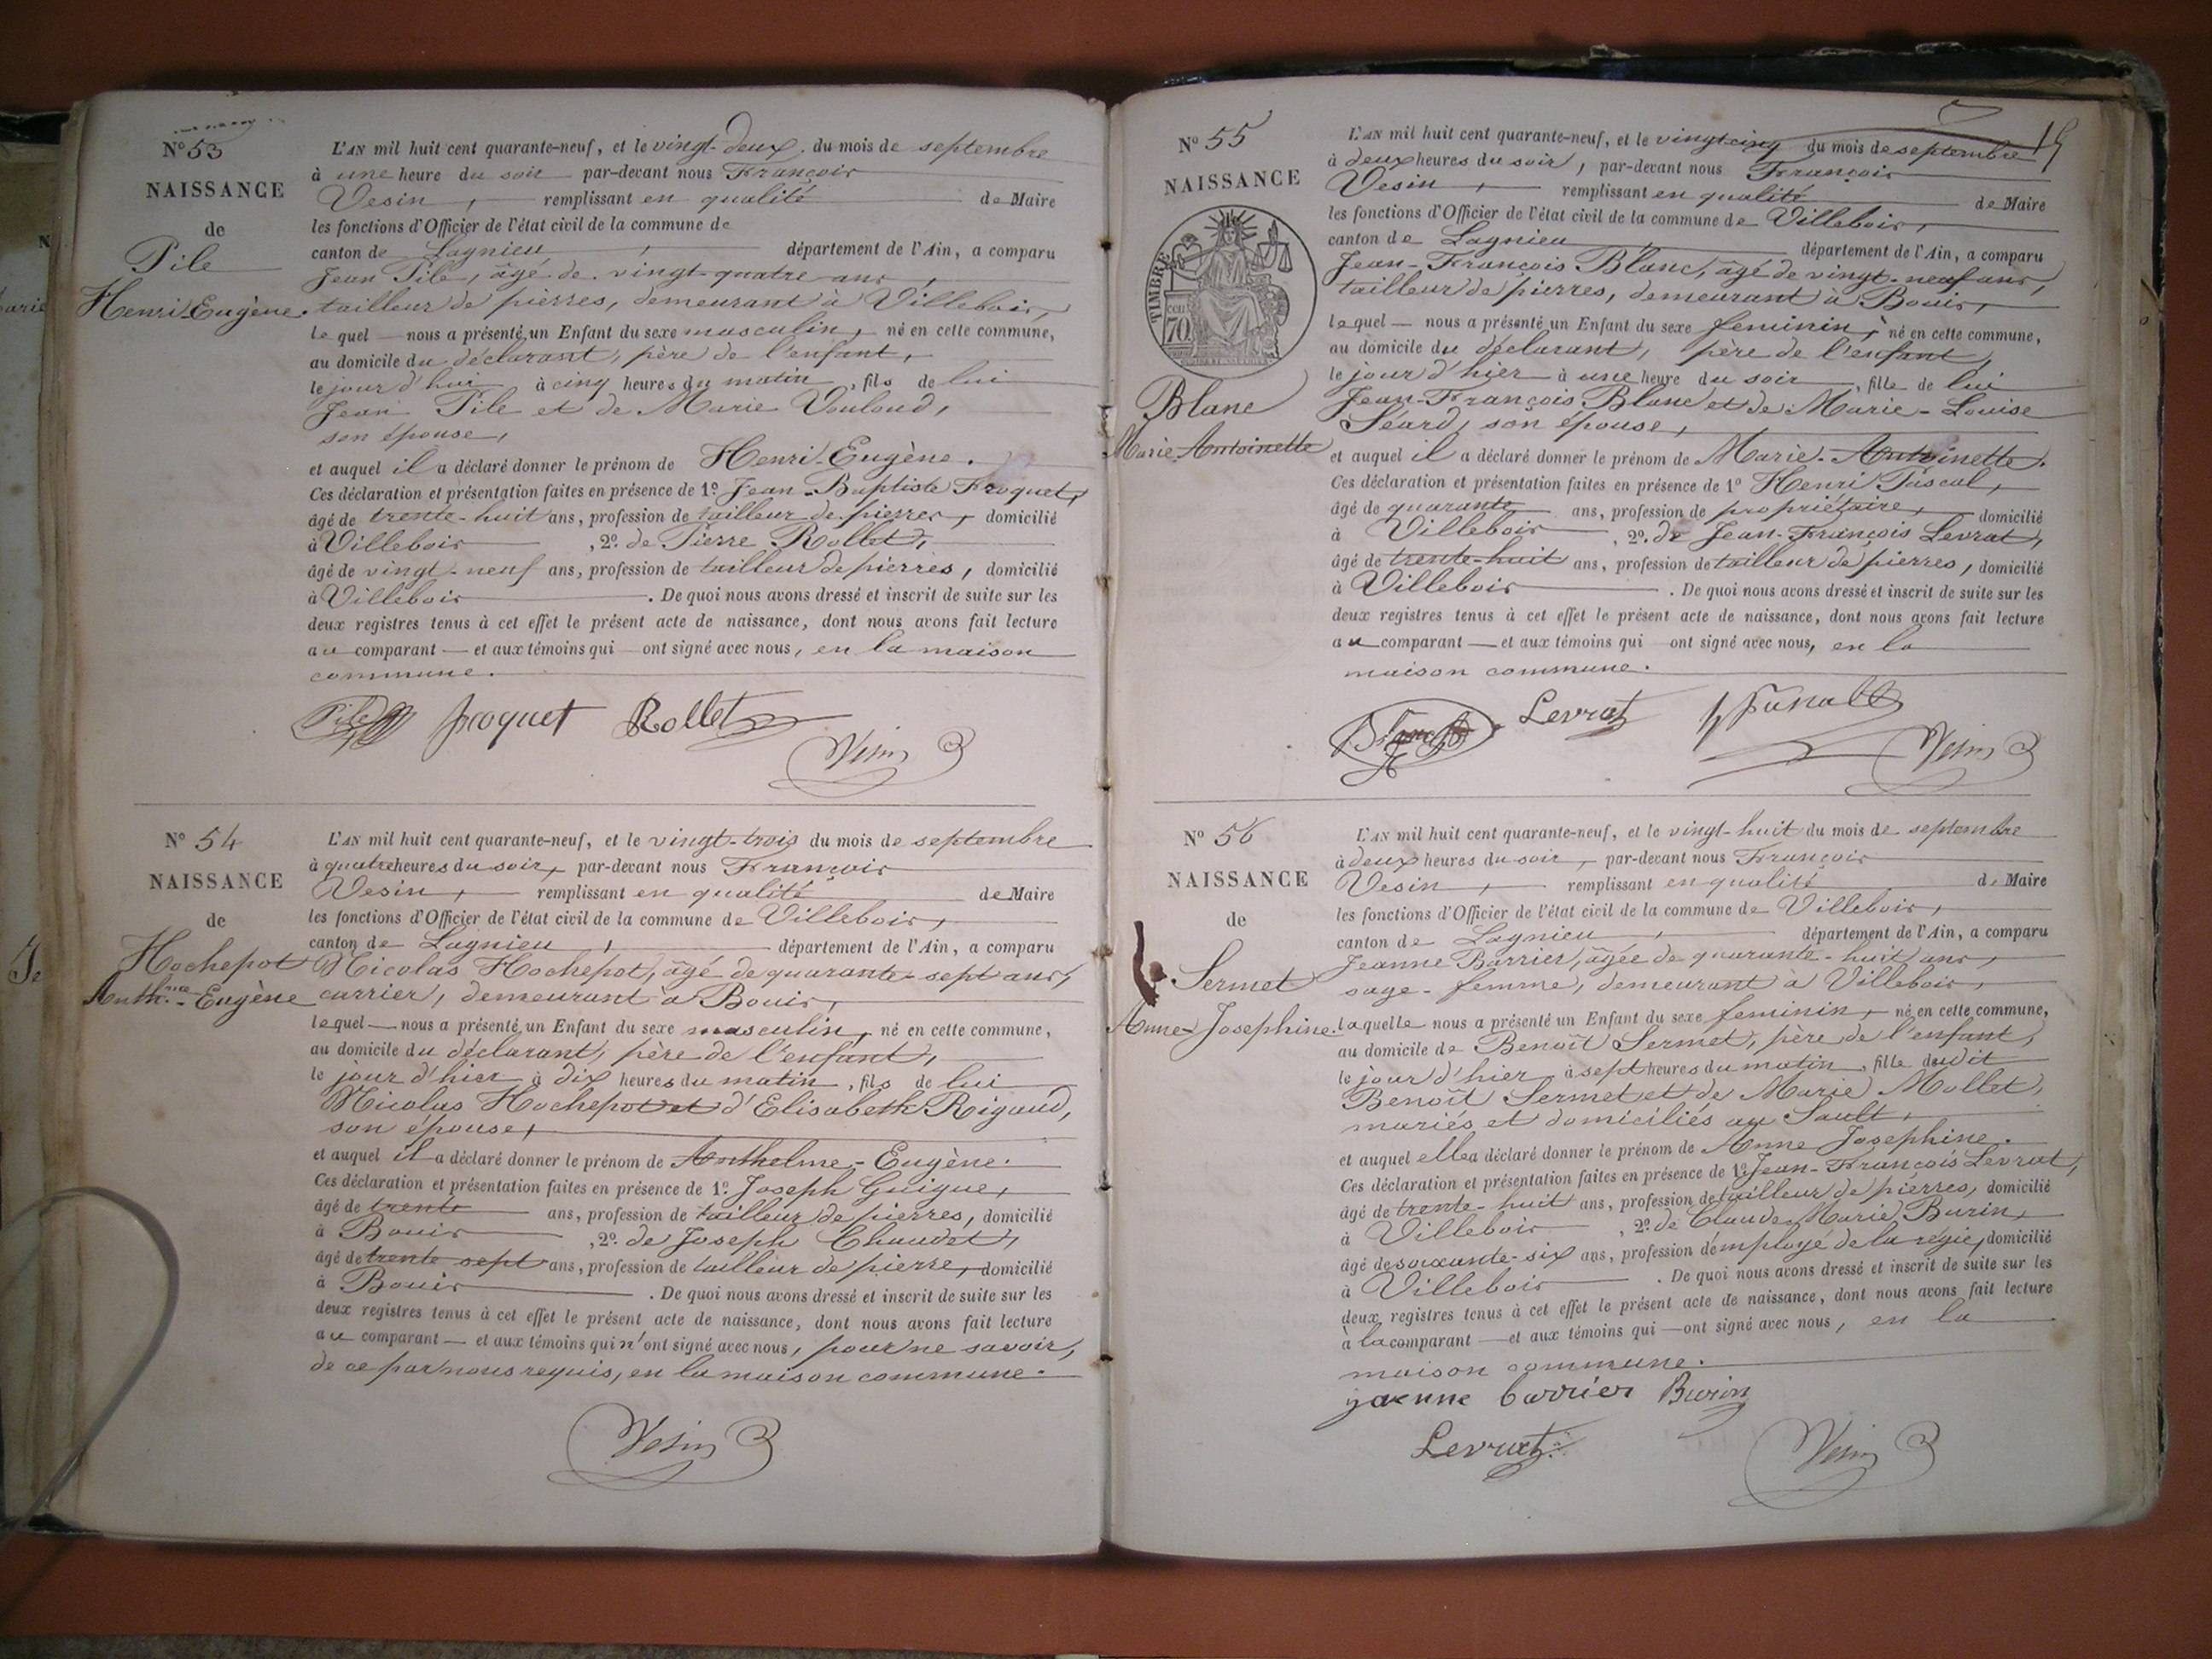 N° 53
NAISSANCE
de
Pile
Henri-Eugène.
L'AN mil huit cent quarante-neuf, et le vingt-deux, du mois de septembre
à une heure du soir par-devant nous François
Vesin, remplissant en qualité de Maire
les fonctions d'Officier de l'état civil de la commune de
canton de Lagnieu, département de l'Ain, a comparu
Jean Pile, âgé de vingt-quatre ans,
tailleur de pierres, demeurant à Villebois,
lequel nous a présenté un Enfant du sexe masculin, né en cette commune,
au domicile du déclarant, père de l'enfant,
le jour d'hui à cinq heures du matin, fils de lui
Jean Pile et de Marie Vouloud,
son épouse,
et auquel il a déclaré donner le prénom de Henri-Eugène.
Ces déclaration et présentation faites en présence de 1º Jean-Baptiste Froquet,
âgé de trente-huit ans, profession de tailleur de pierres, domicilié
à Villebois, 2º de Pierre Rollet,
âgé de vingt-neuf ans, profession de tailleur de pierres, domicilié
à Villebois. De quoi nous avons dressé et inscrit de suite sur les
deux registres tenus à cet effet le présent acte de naissance, dont nous avons fait lecture
au comparant et aux témoins qui ont signé avec nous, en la maison
commune.
Pile froquet Rollet
Vesin
N° 54
NAISSANCE
de
Hochepot
Anth.me-Eugène
L'AN mil huit cent quarante-neuf, et le vingt-trois du mois de septembre
à quatre heures du soir, par-devant nous François
Vesin, remplissant en qualité de Maire
les fonctions d'Officier de l'état civil de la commune de Villebois,
canton de Lagnieu, département de l'Ain, a comparu
Nicolas Hochepot, âgé de quarante-sept ans,
carrier, demeurant à Bouis,
lequel nous a présenté un Enfant du sexe masculin, né en cette commune,
au domicile du déclarant, père de l'enfant,
le jour d'hier à dix heures du matin, fils de lui
Nicolas Hochepot et d'Elisabeth Rigaud,
son épouse,
et auquel il a déclaré donner le prénom de Anthelme-Eugène.
Ces déclaration et présentation faites en présence de 1º Joseph Guigue,
âgé de trente ans, profession de tailleur de pierres, domicilié
à Bouis, 2º de Joseph Chaudet,
âgé de trente sept ans, profession de tailleur de pierre, domicilié
à Bouis. De quoi nous avons dressé et inscrit de suite sur les
deux registres tenus à cet effet le présent acte de naissance, dont nous avons fait lecture
au comparant et aux témoins qui n'ont signé avec nous, pour ne savoir,
de ce par nous requis, en la maison commune.
Vesin
15
N° 55
NAISSANCE
TIMBRE
70
Blanc
Marie-Antoinette
L'AN mil huit cent quarante-neuf, et le vingt cinq du mois de septembre
à deux heures du soir, par-devant nous François
Vesin, remplissant en qualité de Maire
les fonctions d'Officier de l'état civil de la commune de Villebois,
canton de Lagnieu département de l'Ain, a comparu
Jean-François Blanc, âgé de vingt-neuf ans,
tailleur de pierres, demeurant à Bouis,
lequel nous a présenté un Enfant du sexe feminin, né en cette commune,
au domicile du déclarant, père de l'enfant,
le jour d'hier à une heure du soir, fille de lui
Jean-François Blanc et de Marie-Louise
Séard, son épouse,
et auquel il a déclaré donner le prénom de Marie-Antoinette.
Ces déclaration et présentation faites en présence de 1º Henri Puscal,
âgé de quarante ans, profession de propriétaire, domicilié
à Villebois, 2º de Jean-François Levrat,
âgé de trente-huit ans, profession de tailleur de pierres, domicilié
à Villebois. De quoi nous avons dressé et inscrit de suite sur les
deux registres tenus à cet effet le présent acte de naissance, dont nous avons fait lecture
au comparant et aux témoins qui ont signé avec nous, en la
maison commune.
Levrat
Vesin
N° 56
NAISSANCE
de
Sermet
Anne-Josephine.
L'AN mil huit cent quarante-neuf, et le vingt-huit du mois de septembre
à deux heures du soir, par-devant nous François
Vesin, remplissant en qualité de Maire
les fonctions d'Officier de l'état civil de la commune de Villebois,
canton de Lagnieu, département de l'Ain, a comparu
Jeanne Barrier, âgée de quarante-huit ans,
sage-femme, demeurant à Villebois,
laquelle nous a présenté un Enfant du sexe feminin, né en cette commune,
au domicile de Benoît Sermet, père de l'enfant,
le jour d'hier à sept heures du matin, fille dudit
Benoît Sermet et de Marie Mollet,
mariés et domiciliés au Sault,
et auquel elle a déclaré donner le prénom de Anne Josephine.
Ces déclaration et présentation faites en présence de 1º Jean-François Levrat,
âgé de trente-huit ans, profession de tailleur de pierres, domicilié
à Villebois, 2º de Claude-Marie Burin,
âgé de soixante-six ans, profession d'employé de la régie, domicilié
à Villebois. De quoi nous avons dressé et inscrit de suite sur les
deux registres tenus à cet effet le présent acte de naissance, dont nous avons fait lecture
à la comparant et aux témoins qui ont signé avec nous, en la
maison commune.
jaenne barrier Burin
Levrat
Vesin